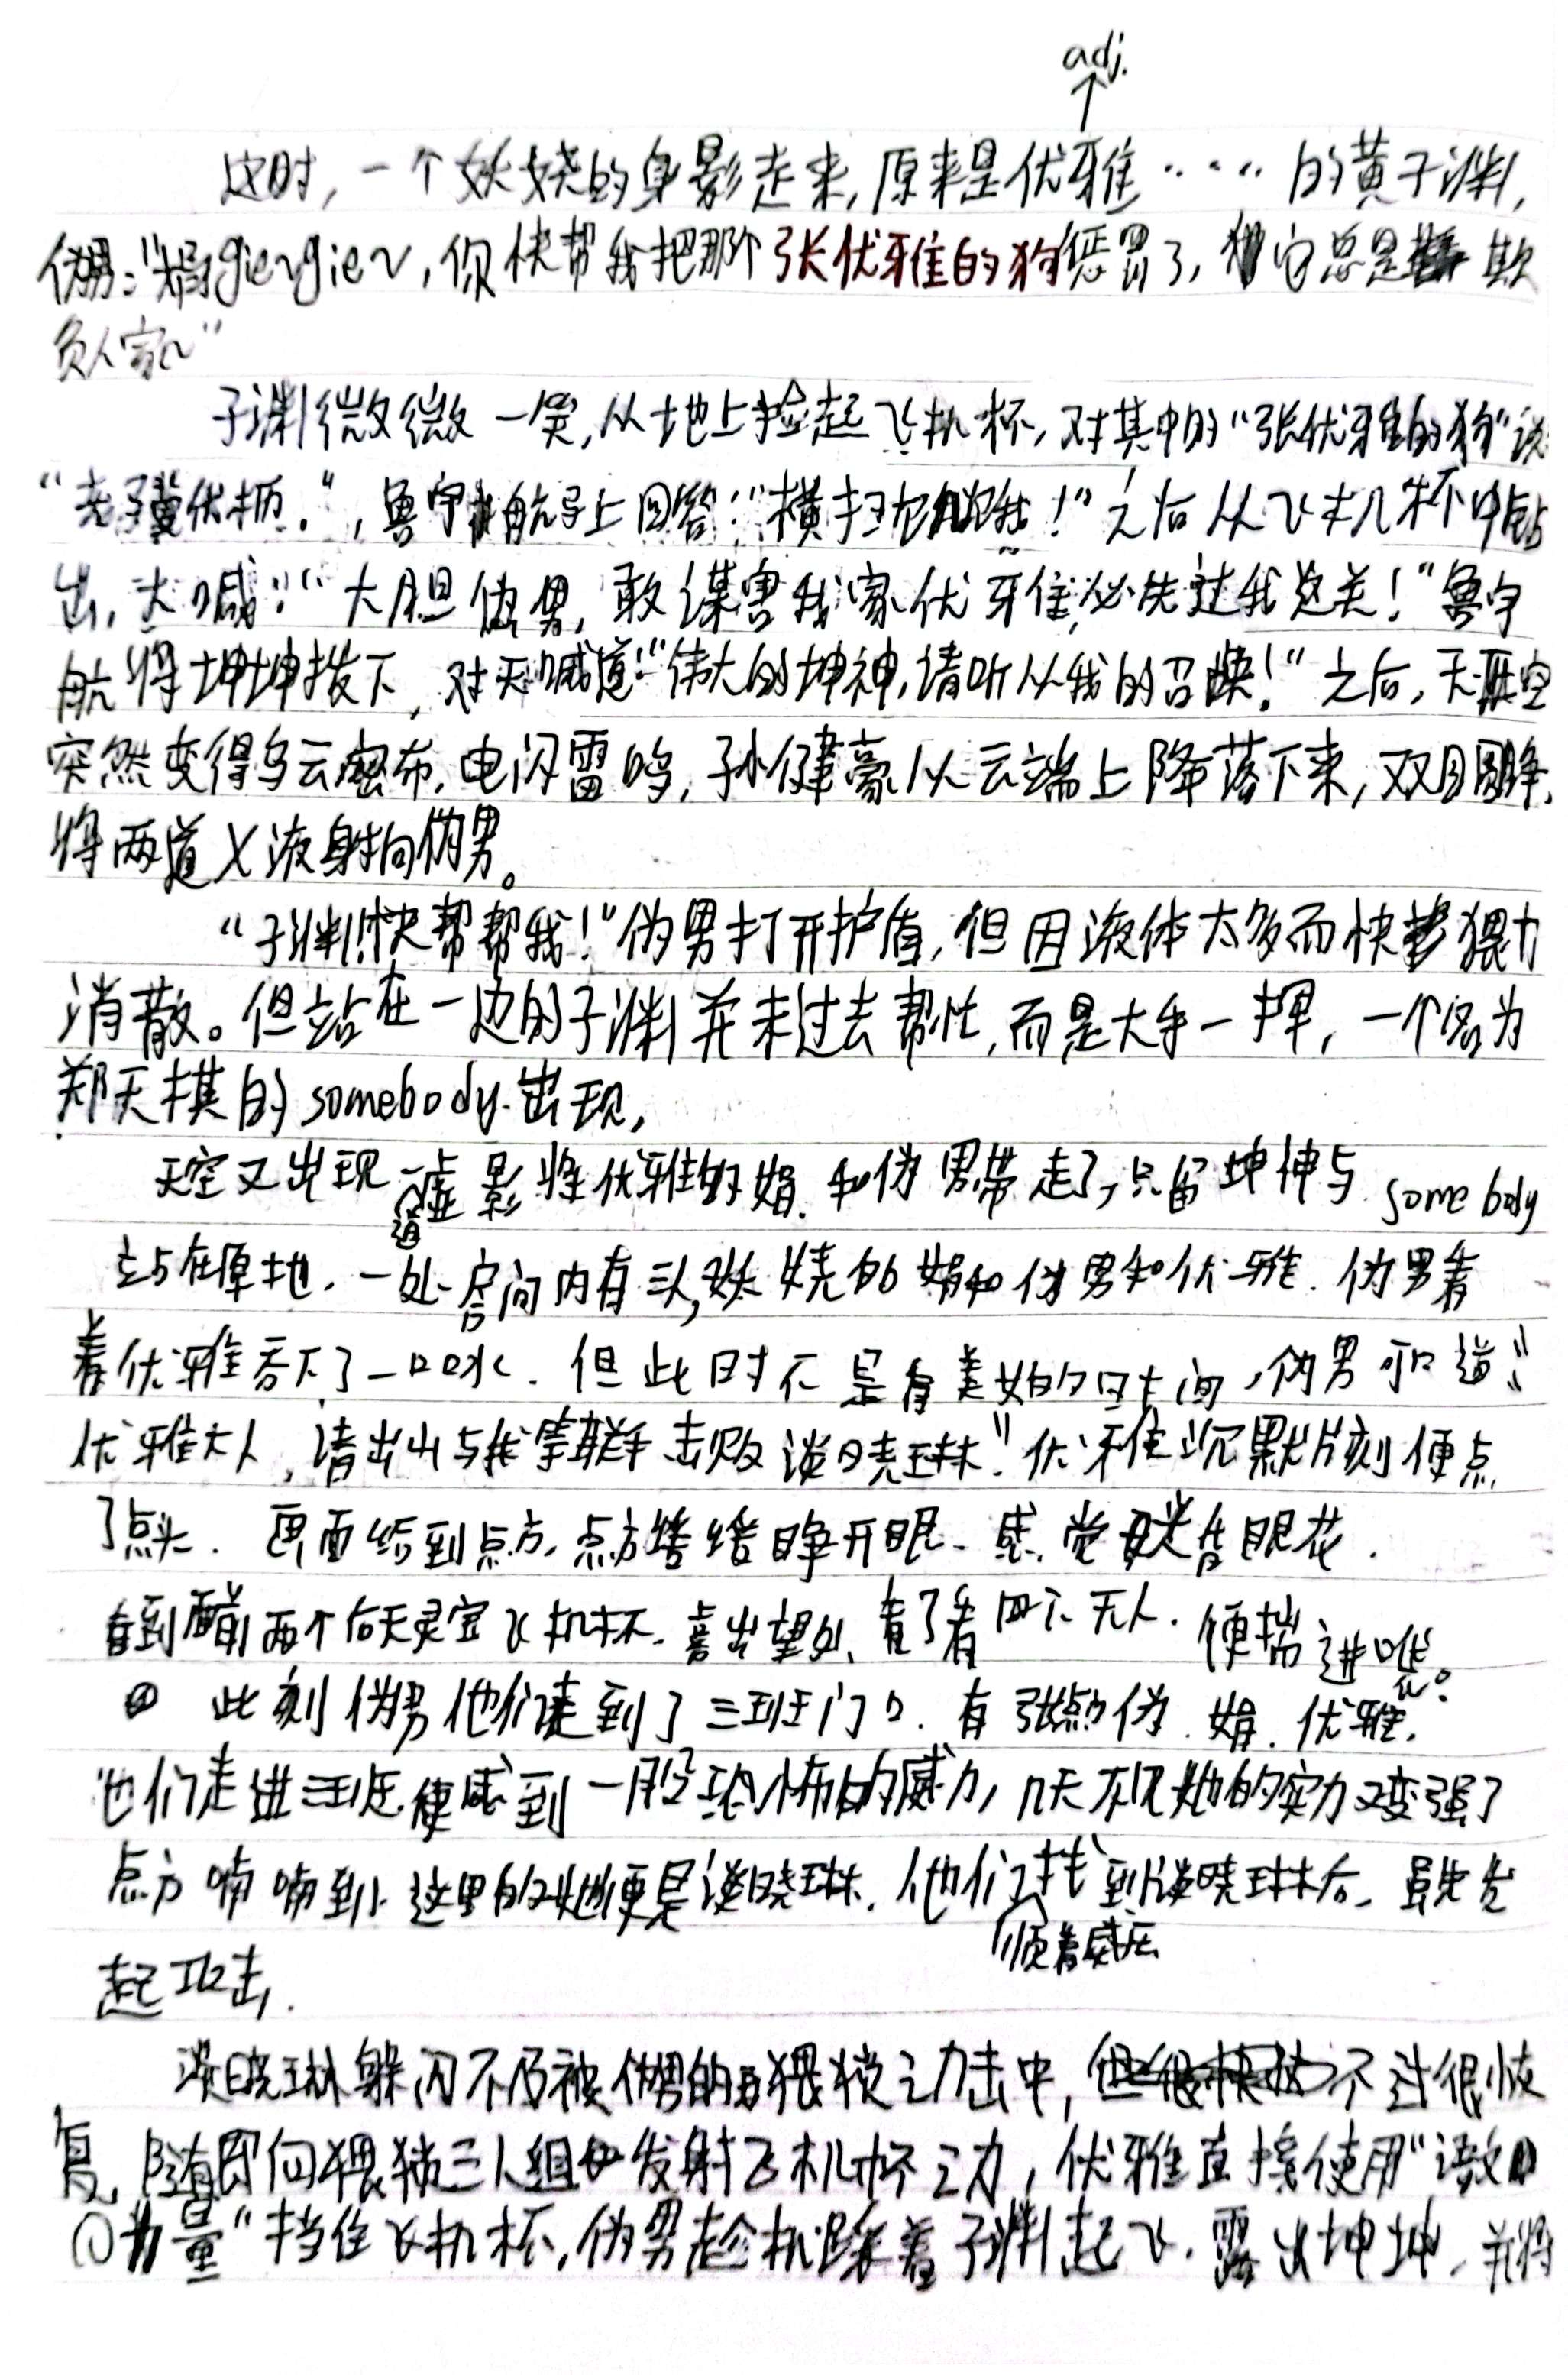 adj.
这时,一个妖娆的身影走来,原来是优雅……的黄子渊,
伪男:"娟giegie~,你快帮我把那个张优雅的狗惩罚了,它总是欺
负人家~"
子渊微微一笑,从地上捡起飞机杯,对其中的"张优雅的狗"说
",鲁宇航马上回答:"横扫饥饿!"之后从飞机杯中钻
出,大喊:"大胆伪男,敢谋害我家优雅,必先过我这关!"鲁宇
航将坤坤拔下,对天喊道:"伟大的坤神,请听从我的召唤!"之后,天空
突然变得乌云密布,电闪雷鸣,孙健豪从云端上降落下来,双目圆睁,
将两道X液射向伪男。
"子渊!快帮帮我!"伪男打开护盾,但因液体太多而快猥力
消散。但站在一边的子渊并未过去帮忙,而是大手一挥,一个名为
郑天棋的somebody出现,
天空又出现一道虚影将优雅的娟和伪男带走了,只留坤神与somebody
站在原地.一处空间内有三头,妖娆的娟和伪男和优雅.伪男看
着优雅吞下了一口口水.但此时不是有美女的时间,伪男叩道:"
优雅大人,请出山与我等联手击败谈晓琳"优雅沉默片刻便点
了点头.画面给到点方,点方缓缓睁开眼、感觉头昏眼花.
看到面前两个后天灵宝飞机杯.喜出望外,看了看四下无人.便揣进嘿。
此刻伪男他们走到了三班门口.有张点方伪.娟.优雅.
他们走进三班便感到一股恐怖的威力,几天不见她的实力又变强了
点方喃喃到.这里的她便是谈晓琳.他们顺着威压找到谈晓琳后.率先发
起攻击.
谈晓琳躲闪不及被伪男的猥猥琐之力击中,不过很快恢
复,随即向猥琐三人组发射飞机杯之力,优雅直接使用"
力量"挡住飞机杯,伪男趁机踩着子渊起飞.露出坤坤,并将